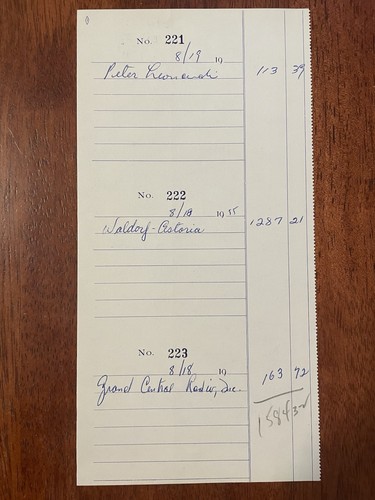 No. 221
8/19 19
Peter Leonardi 113 39
No. 222
8/18 19 55
Waldorf-Astoria 1287 21
No. 223
8/18, 19
Grand Central Radio, Inc. 163 92